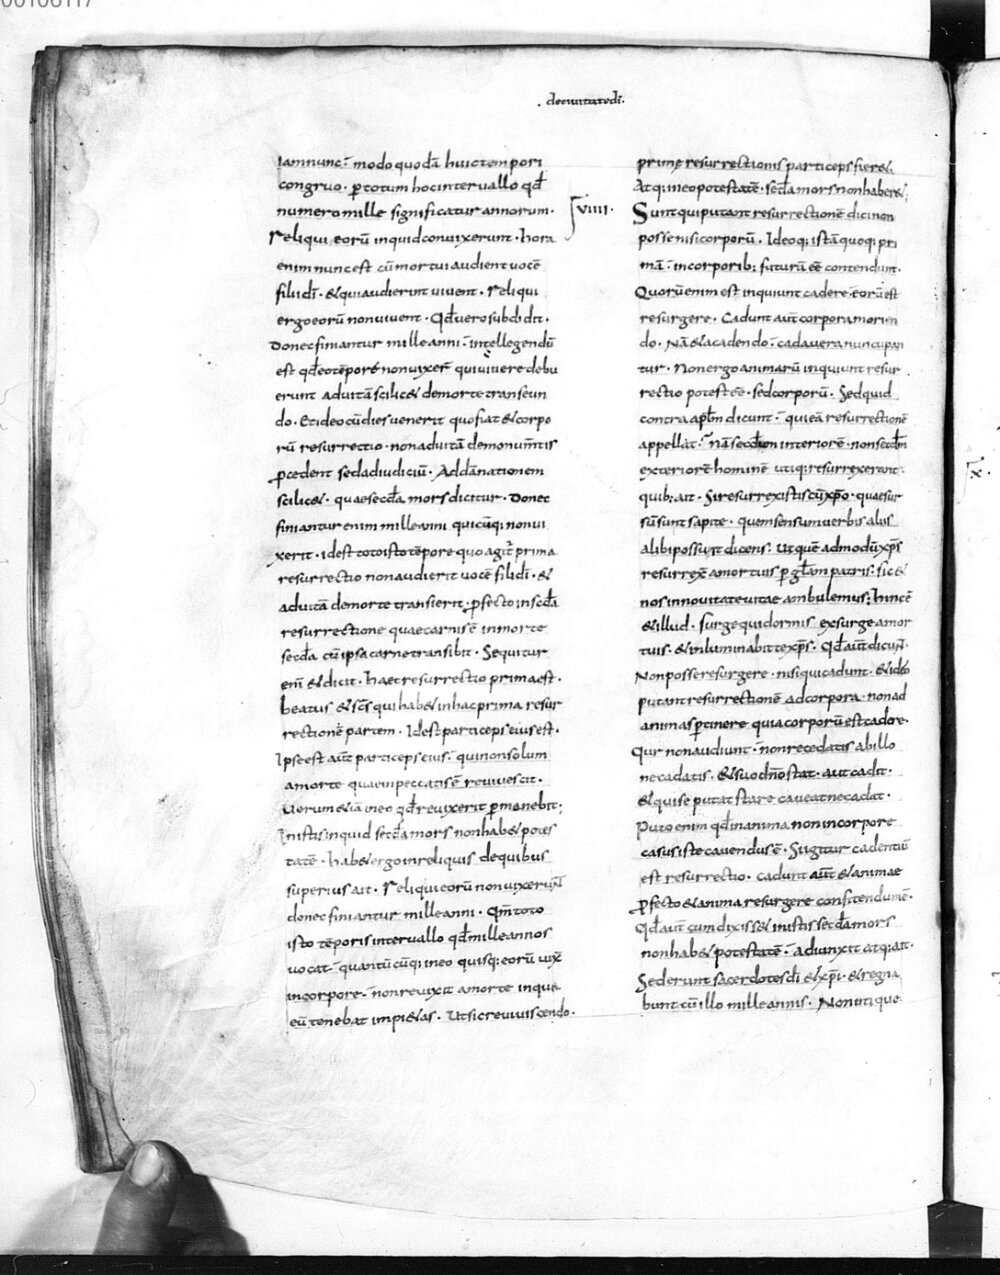 00106117
. deciuitatedi.
Iamnunc· modoquodā huictempori
congruo· ꝑtotum hocinteruallo qđ
numeromille significatur annorum·
Reliqui eorū inquidconuixerunt· hora
enimnuncest cūmortuiaudientuocē
filiidī· &quiaudierint uiuent· Reliqui
ergoeorū nonuiuent· Qđuerosubdidit·
donecfiniantur milleanni· intellegendū
est qđeotēporē nonuixer̄ quiuiueredebu
erunt aduitāscilic& demortetranseun
do· Etideocūdiesuenerit quofiat &corpo
rū resurrectio· nonaduitā demonum̄tis
ꝓcedent sedadiudiciū· Addānationem
scilic&· quaesecđa morsdicitur· donec
finianturenim milleanni quicūq; nonui
xerit· idest totoistotēpore quoagit̄ prima
resurrectio nonaudierit uocē filiidī· &
aduitā demorte transierit· ꝓfectoinsecđa
resurrectione quaecarnisē inmorte
secđa cūipsacarnetransibit· Sequitur
eni &dicit· haecresurrectio primaest·
beatus &scs quihab& inhacprima resur
rectionē partem· Idestparticepseiusest·
Ipseest aūt particepseius· quinonsolum
amorte quaeinpeccatisē reuiuescit·
Uerum&iā ineo qđreuixerit ꝑmanebit;
Inistisinquid secđamors nonhab& potes
tatē· hab&ergoinreliquis dequibus
superius ait· Reliquieorū nonuixerunt
donec finiantur milleanni· Qm̄toto
isto tēporisinteruallo qđmilleannos
uocat· quantūcūq; ineo quisq; eorū uix
incorpore· nonreuixit amorte inqua
eū tenebat impi&as· Utsicreuiuiscendo·
primę resurrectionis particepsfier&·
Atq; ineopotestatē· secđamorsnonhaber&;
VIIII·
Suntquiputant resurrectionē dicinon
possenisicorporū· Ideoq; istāquoq; pri
mā· incorporib; futurā eē contendunt·
Quorūenim est inquiunt cadere· eorūest
resurgere· Cadunt aūt corporamorien
do· Nā&acadendo· cadaueranuncupan
tur· Nonergoanimarū inquiunt resur
rectio potesteē· sedcorporū· Sedquid
contraaplm̄ dicunt· quieā resurrectionē
appellat· nāsecđum interiorē· nonsecđm
exteriorē hominē utiq; resurrexerant·
quib; ait· Siresurrexistiscūxp̄o· quaesur
sūsunt sapite· quemsensumuerbis aliis
alibiposuit dicens; Utquē admodūxp̄s
resurrex& amortuis ꝑ gl̄am patris; sic&
nosinnouitateuitae ambulemus; hincē
&illud· surgequidormis exsurgeamor
tuis· &inluminabittexp̄s· Qđaūtdicunt·
Nonposseresurgere· nisiquicadunt· &ideo
putantresurrectionē adcorpora· nonad
animasꝑtinere quiacorporūestcadere·
Qur nonaudiunt· nonrecedatis abillo
necadatis· &suodn̄ostat· autcadit·
&quise putat stare caueatnecadat·
Putoenim qđinanima nonincorpore
casusistecauendusē· Siigitur cadentiū
est resurrectio· cadunt aūt &animae
ꝓfecto&anima resurgere confitendumē·
Qđaūt cumdixiss& inistissecđamors
nonhab& potestatē· adiunxit atq; ait·
Sederuntsacerdotesdī &xp̄i· &regna
bunt cūillo milleannis· Nonutique